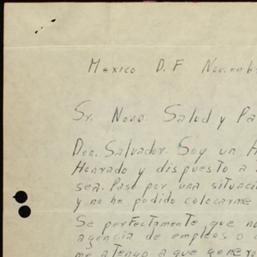 Mexico D. F Noviemb
Sr. Novo. Salud y Pa
Don. Salvador. Soy un H
Honrado y dispuesto a
sea. Pasé por una situaci
y no he podido colocarme
Se perfectamente que no
agencia de empleos o
me atengo a que genero